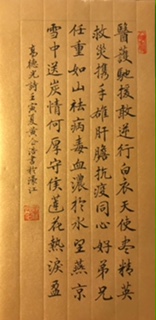 醫護馳援敢逆行白衣天使盡精英
救災攜手雄肝膽抗疫同心好弟兄
任重如山祛病毒血濃於水望燕京
雪中送炭情何厚守候蓮花熱淚盈
高德光詩壬寅夏黃心浩書於濠江